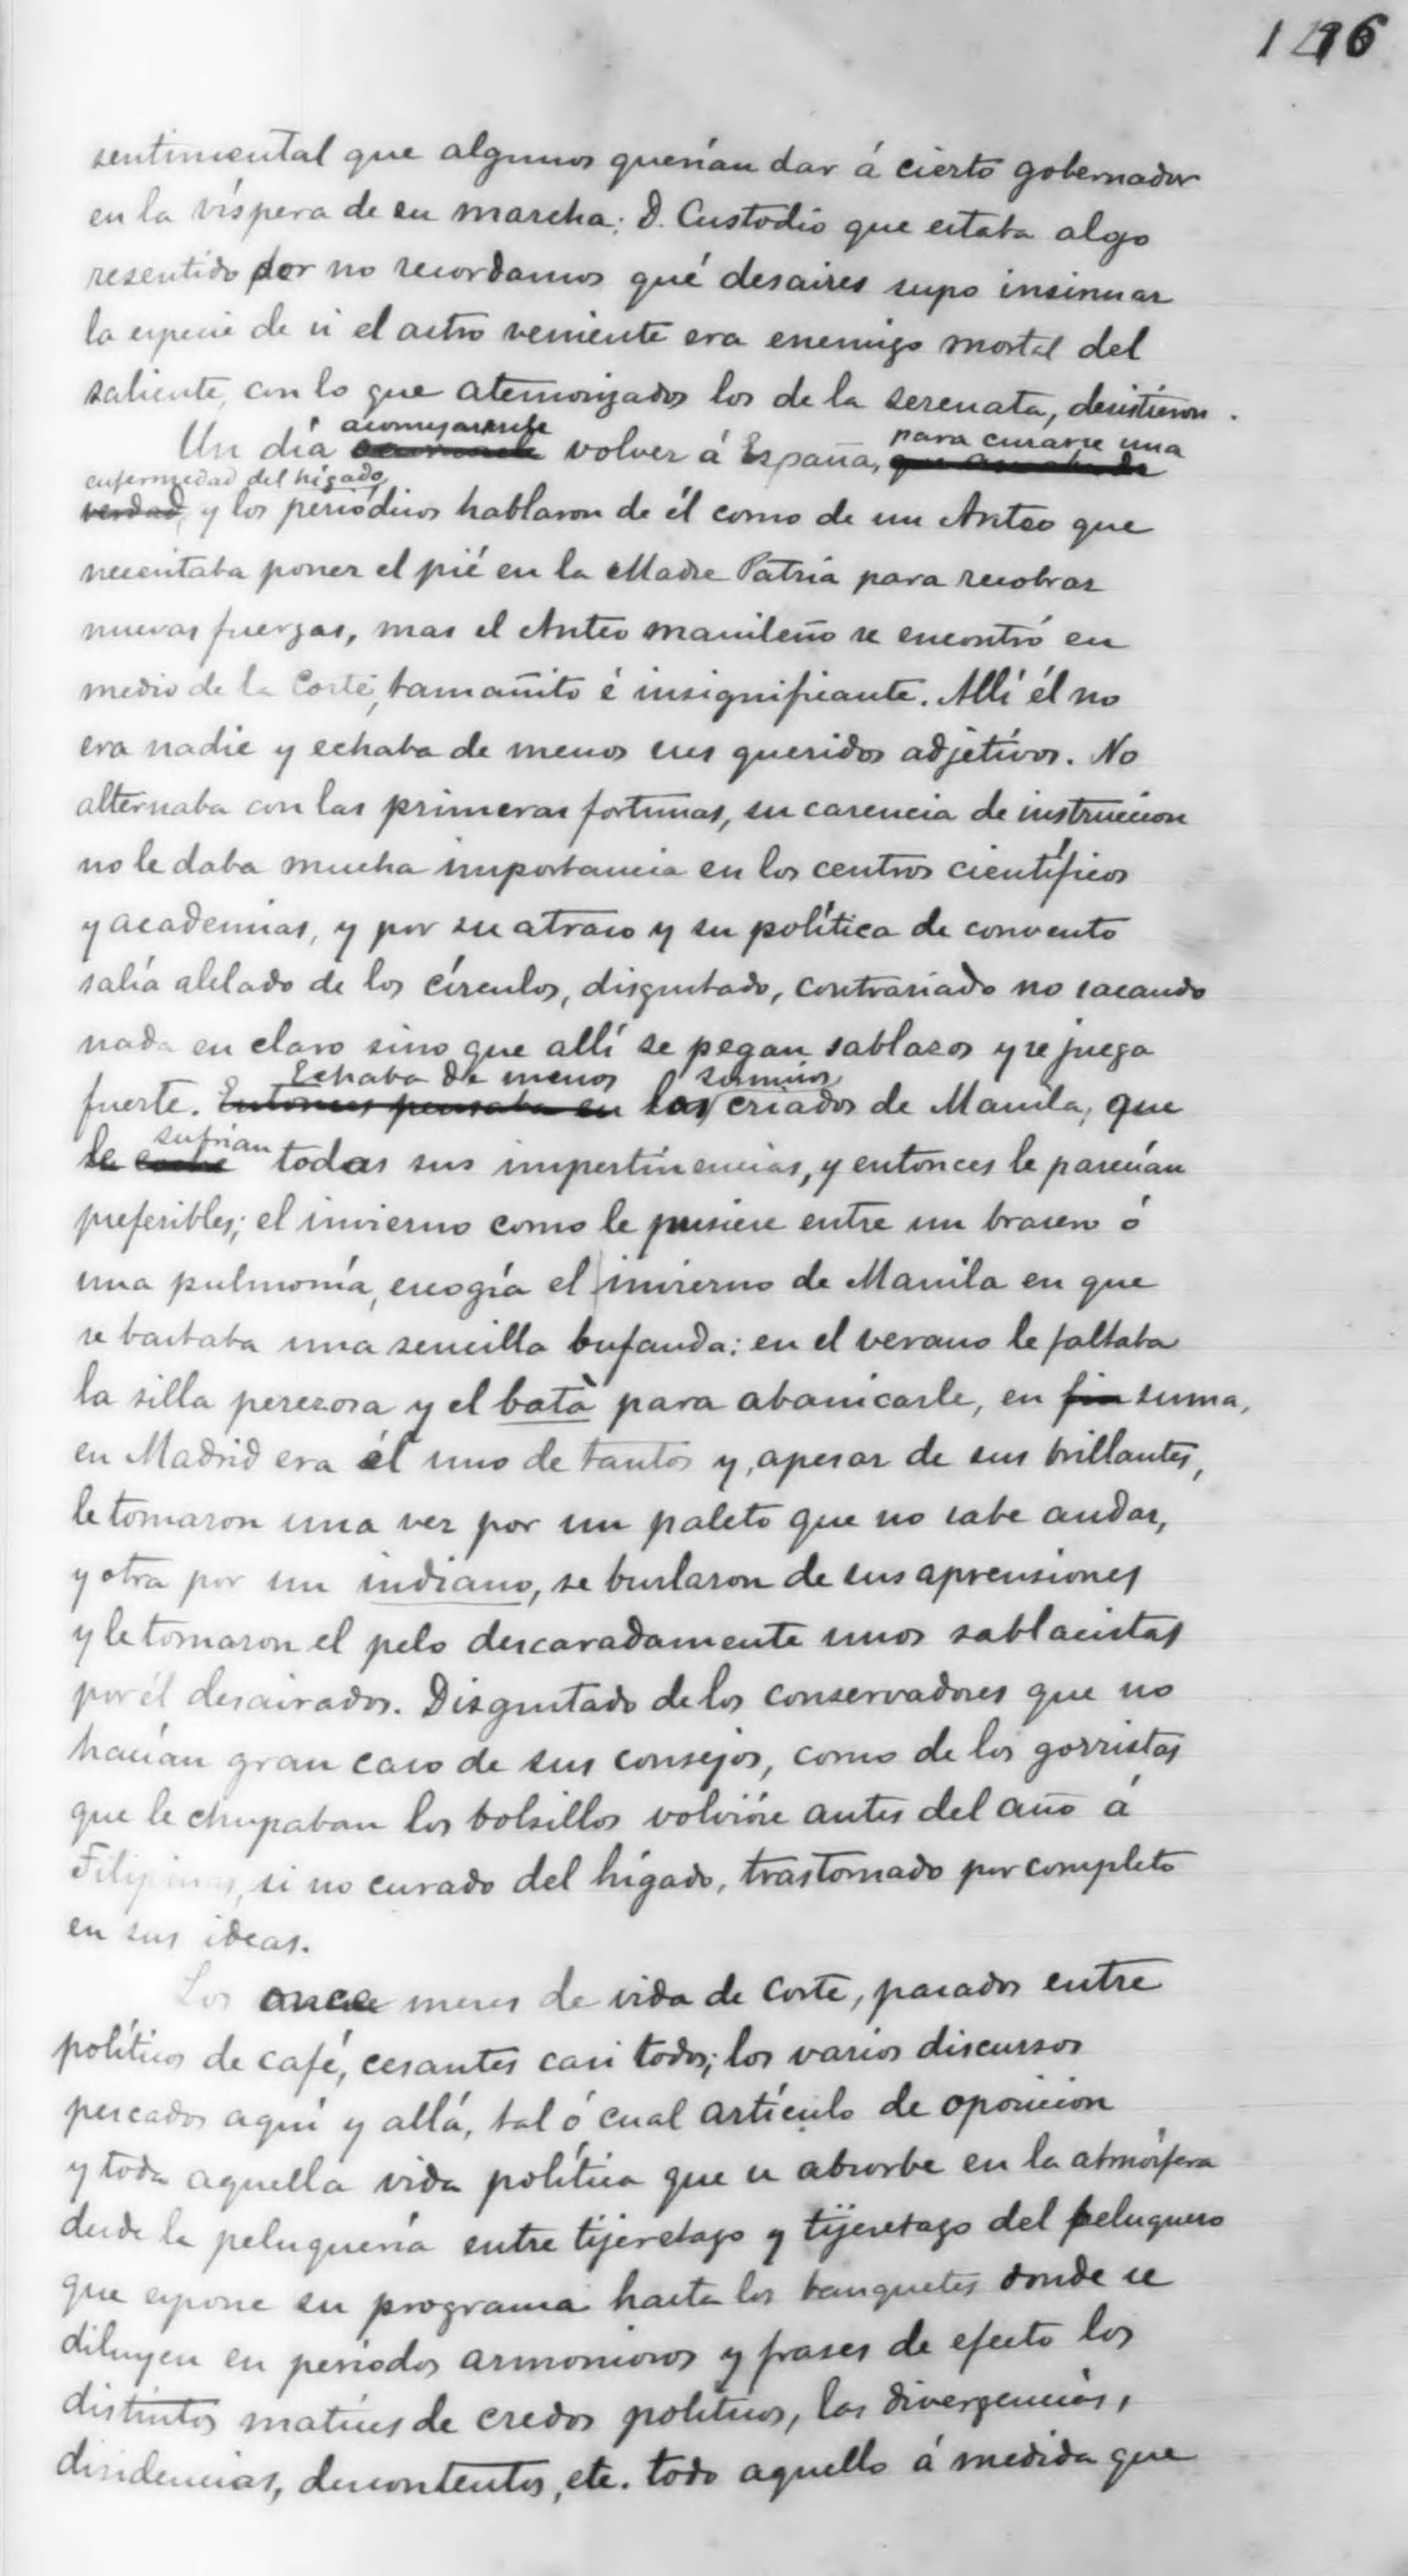 126
sentimental que algunos querían dar á cierto gobernador
en la víspera de su marcha; D. Custodio que estaba algo
resentido por no recordamos qué desaires supo insinuar
la especie de si el astro veniente era enemigo mortal del
saliente, con lo que atemorizados los de la serenata, desistieron.
aconsejáronle para curarse una
Un día volver á España,
enfermedad del hígado
verdad, y los periódicos hablaron de él como de un Anteo que
necesitaba poner el pié en la Madre Patria para recobrar
nuevas fuerzas, mas el Anteo manileño se encontró en
medio de la Corte, tamañito é insignificante. Allí él no
era nadie y echaba de menos sus queridos adjetivos. No
alternaba con las primeras fortunas, su carencia de instruccion
no le daba mucha importancia en los centros científicos
y academias, y por su atraso y su política de convento
salía alelado de los círculos, disgustado, contrariado no sacando
nada en claro sino que allí se pegan sablazos y se juega
Echaba de menos sumisos
fuerte. Entonces pensaba en los criados de Manila, que
sufrían
le todas sus impertinencias, y entonces le parecían
preferibles; el invierno como le pusiese entre un brasero ó
una pulmonía, escogía el invierno de Manila en que
se bastaba una sencilla bufanda: en el verano le faltaba
la silla perezosa y el batà para abanicarle, en fin suma,
en Madrid era él uno de tantos y, apesar de sus brillantes,
le tomaron una vez por un paleto que no sabe andar,
y otra por un indiano, se burlaron de sus aprensiones
y le tomaron el pelo descaradamente unos sablacistas
por él desairados. Disgustado de los conservadores que no
hacían gran caso de sus consejos, como de los gorristas
que le chupaban los bolsillos volvióse antes del año á
Filipinas, si no curado del hígado, trastornado por completo
en sus ideas.
Los once meses de vida de Corte, pasados entre
políticos de café, cesantes casi todos; los varios discursos
pescados aquí y allá, tal ó cual artículo de oposicion
y toda aquella vida política que se absorbe en la atmósfera
desde la peluquería entre tijeretazo y tijeretazo del peluquero
que espone su programa hasta los banquetes donde se
diluyen en períodos armoniosos y frases de efecto los
distintos matices de credos políticos, las divergencias,
disidencias, descontentos, etc. todo aquello á medida que